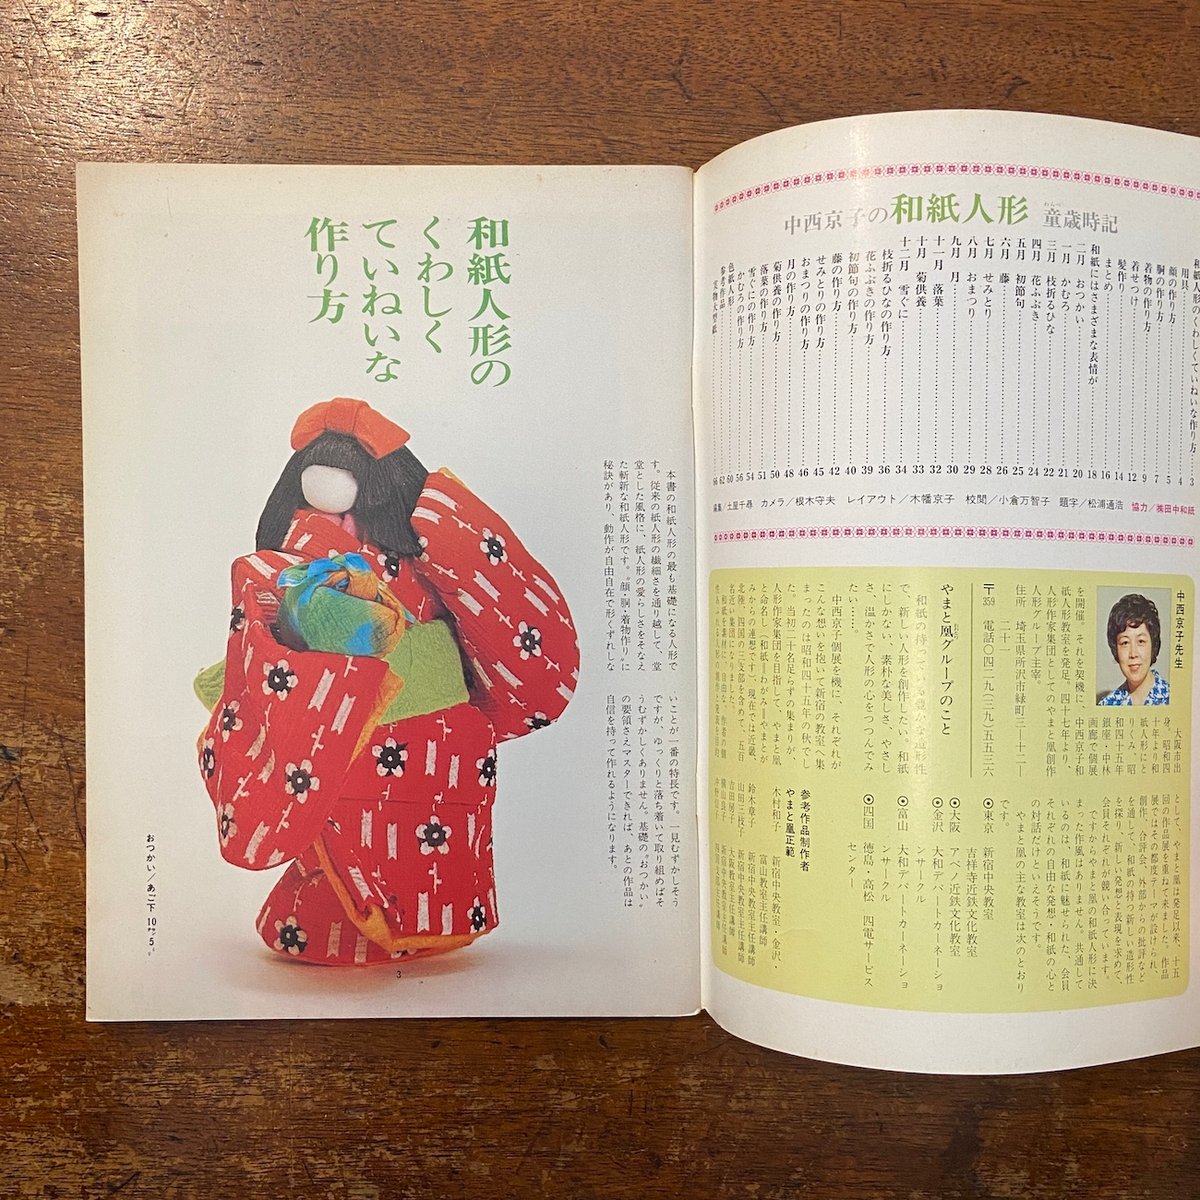 中西京子の和紙人形 童歳時記
わんべ
和紙人形のくわしくていねいな作り方 3
用具 4
顔の作り方 5
胴の作り方 7
着物の作り方 9
着せつけ 12
髪作り 14
まとめ 16
和紙にはさまざまな表情が 18
二月 おつかい 20
一月 かむろ 21
三月 枝折るひな 22
四月 花ふぶき 24
五月 初節句 25
六月 藤 26
七月 せみとり 28
八月 おまつり 29
九月 月 30
十一月 落葉 32
十月 菊供養 33
十二月 雪ぐに 34
枝折るひなの作り方 36
花ふぶきの作り方 39
初節句の作り方 40
藤の作り方 42
せみとりの作り方 45
おまつりの作り方 46
月の作り方 48
菊供養の作り方 50
落葉の作り方 51
雪ぐにの作り方 54
かむろの作り方 56
色紙人形 60
参考作品 62
実物大型紙 66
編集/土屋千尋 カメラ/根木守夫 レイアウト/木幡京子 校閲/小倉万智子 題字/松浦通浩 協力/㈱田中和紙
中西京子先生
大阪市出
身。昭和四
十年より和
紙人形にと
りくみ、昭
和四十五年
銀座・中林
画廊で個展
を開催。それを契機に、中西京子和
紙人形教室を発足。四十七年より、
人形作家集団としてのやまと凰創作
人形グループ主宰。
住所 埼玉県所沢市緑町三―十二―
二十一
〒359 電話〇四二九(三九)五五三六
やまと凰グループのこと
和紙の持っている豊かな造形性
で、新しい人形を創作したい。和紙
にしかない、素朴な美しさ、やさし
さ、温かさで人形の心をつつんでみ
たい……。
中西京子個展を機に、それぞれが
こんな想いを抱いて新宿の教室へ集
まったのは昭和四十五年の秋でし
た。当初二十名足らずの集まりが、
人形作家集団を目指して、やまと凰
と命名し(和紙―わがみ―やまとが
みからの連想です)、現在では近畿、
北陸、四国の三支部を含めて、五百
名近い集団になりました。
和紙を素材に、自由な、作者の個
として、やまと凰は発足以来、十五
回の作品展を重ねて来ました。作品
展ではその都度テーマが設けられ、
創作、合評会、外部からの批評など
を通して、和紙の持つ新しい造形性
を探り、新しい発想と表現を求めて、
会員それぞれが競い合っています。
ですからやまと凰の和紙人形に決
まった作風はありません。共通して
いるのは、和紙に魅せられた、会員
それぞれの自由な発想・和紙の心と
の対話だけといえそうです。
やまと凰の主な教室は次のとおり
です。
⦿東京 新宿中央教室
吉祥寺近鉄文化教室
⦿大阪 アベノ近鉄文化教室
⦿金沢 大和デパートカーネーショ
ンサークル
⦿富山 大和デパートカーネーショ
ンサークル
⦿四国 徳島・高松 四電サービス
センター
参考作品制作者
やまと凰正範
木村和子 新宿中央教室・金沢・
富山教室主任講師
鈴木章子 新宿中央教室主任講師
山田三枝子 新宿中央教室主任講師
吉田房 大阪教室主任講師
横山良子 新宿中央教室主任講師
和紙人形の
くわしく
ていねいな
作り方
本書の和紙人形の最も基礎になる人形で
す。従来の紙人形の繊細さを通り越して、堂
堂とした風格に、紙人形の愛らしさをそなえ
た斬新な和紙人形です。“顔・胴・着物作り”に
秘訣があり、動作が自由自在で形くずれしな
いことが一番の特長です。一見むずかしそう
ですが、ゆっくりと落ち着いて取り組めばそ
うむずかしくありません。基礎の“おつかい”
の要領さえマスターできれば、あとの作品は
自信を持って作れるようになります。
おつかい/あご下
3